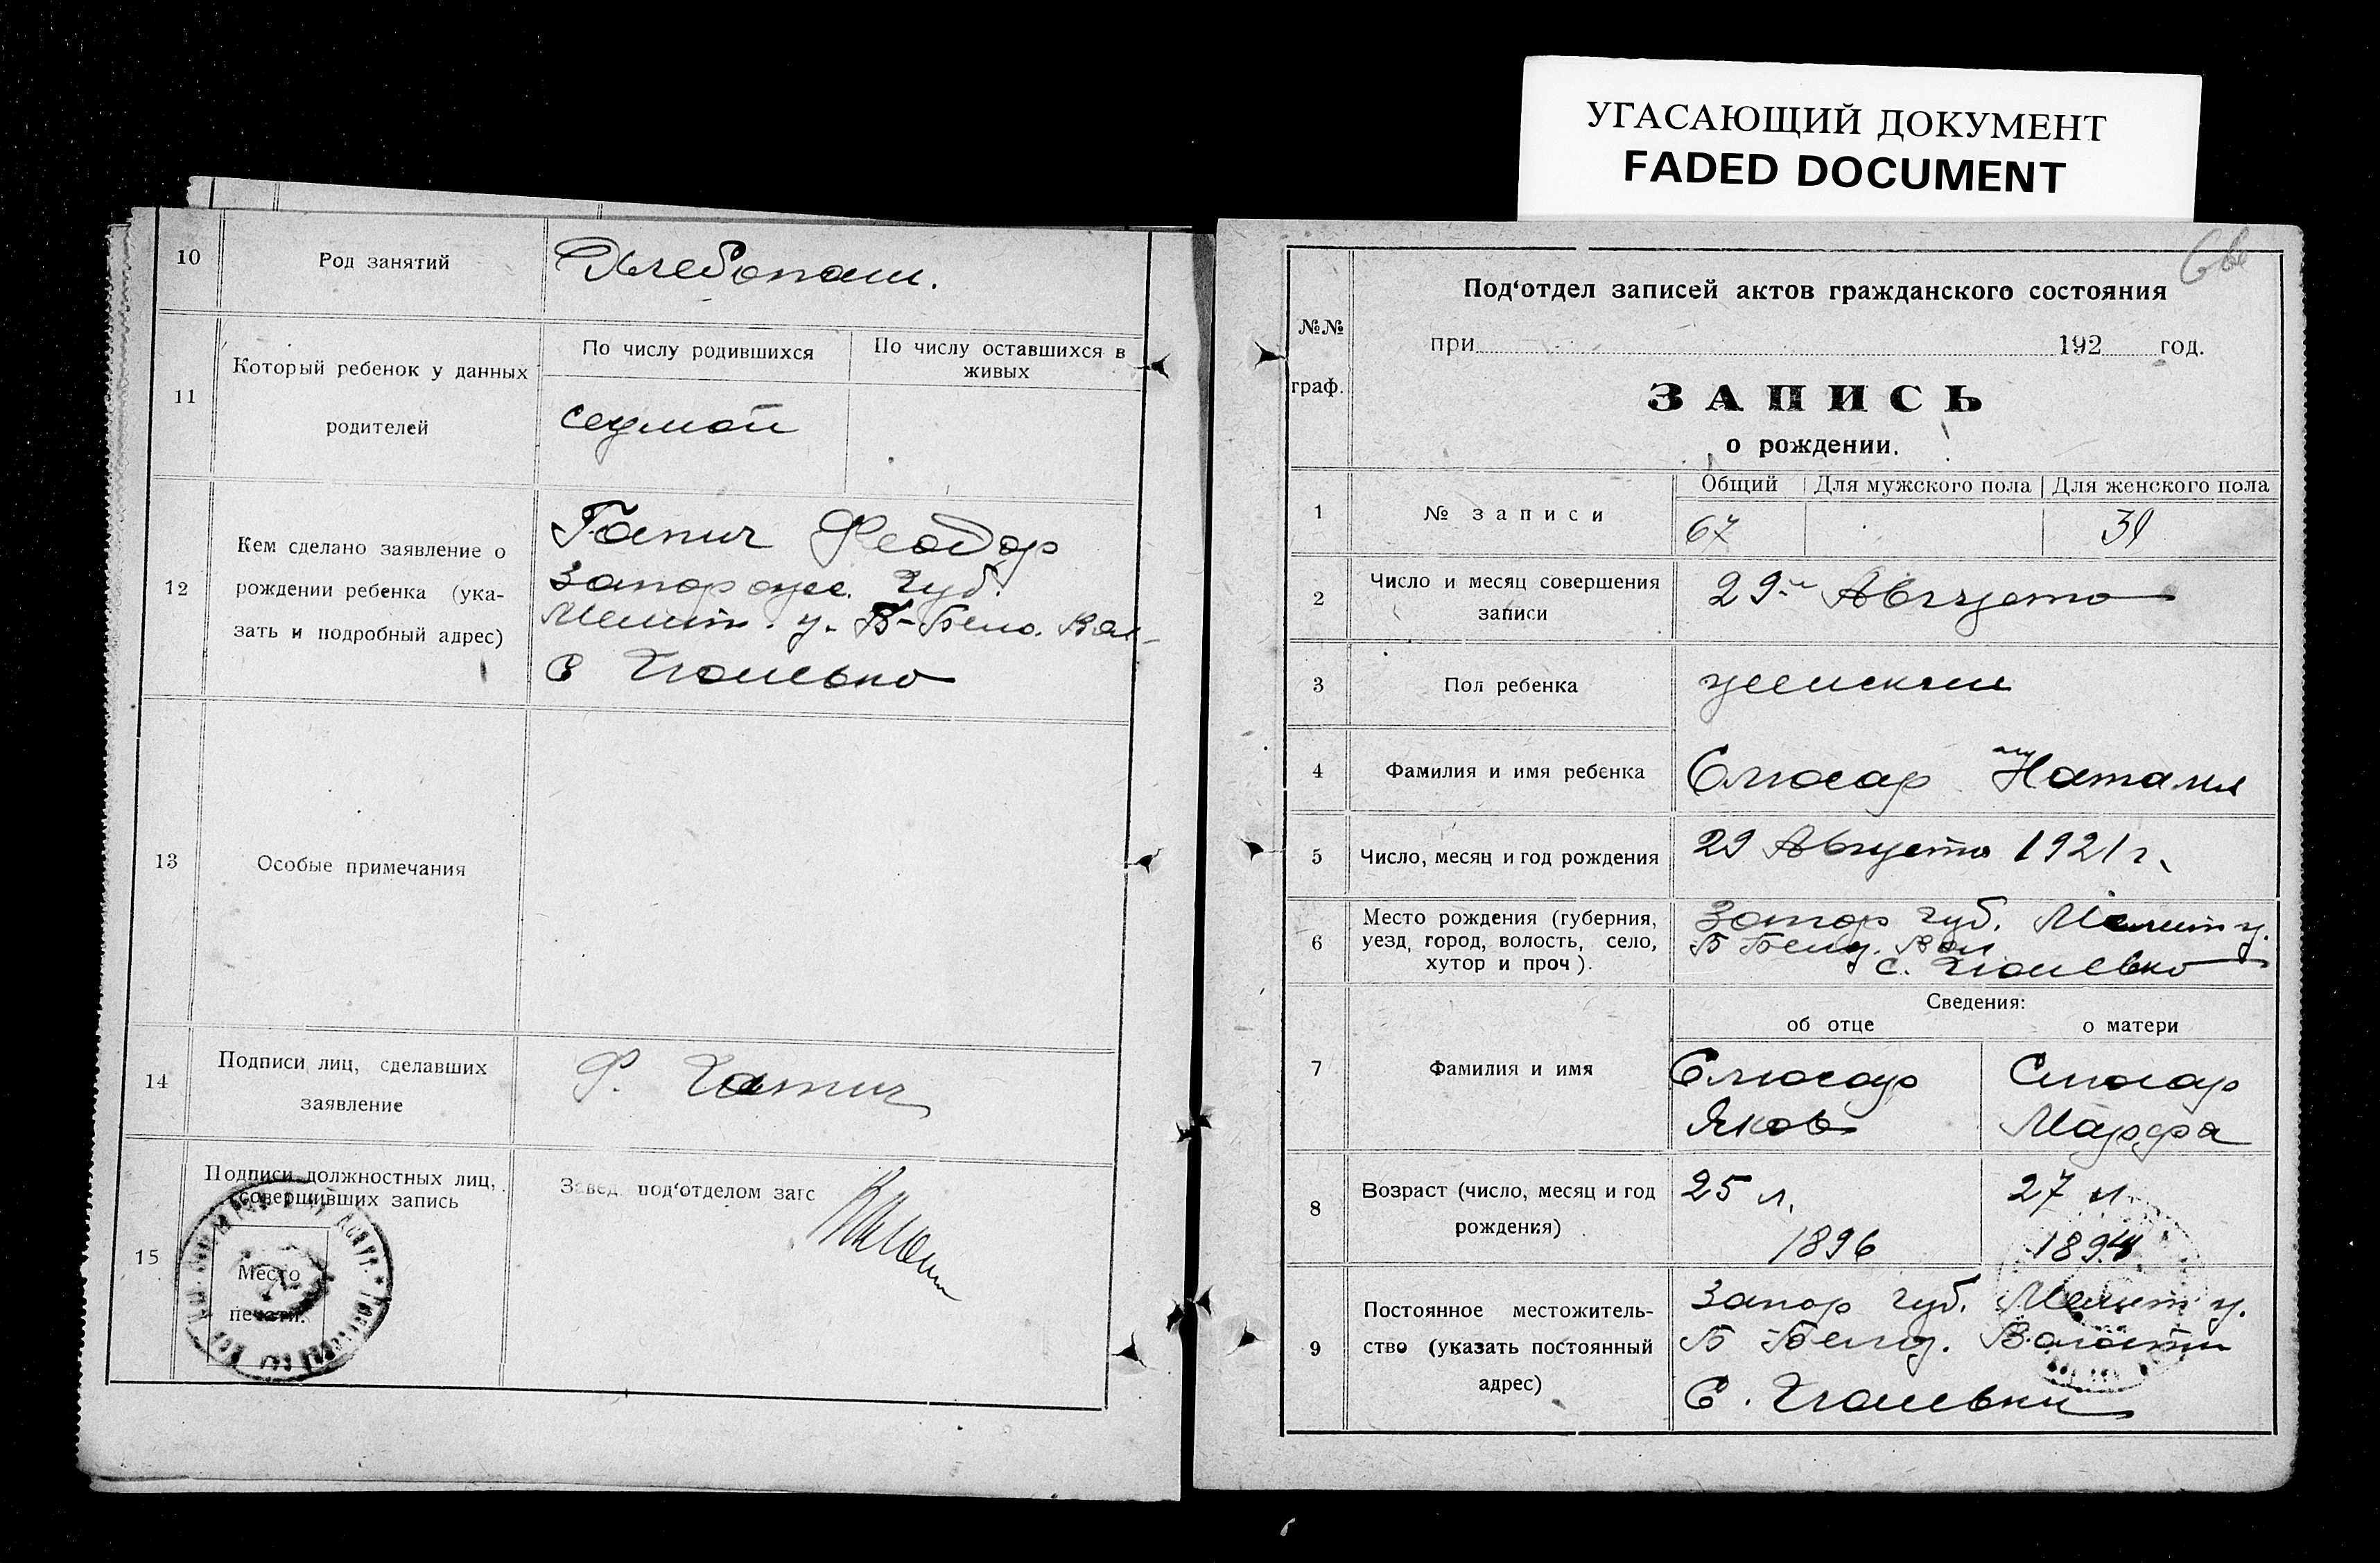 УГАСАЮЩИЙ ДОКУМЕНТ
FADED DOCUMENT
10
Род занятий
Хлебопаш.
11
Который ребенок у данных
родителей
По числу родившихся
По числу оставшихся в
живых
седмой
12
Кем сделано заявление о
рождении ребенка (ука-
зать и подробный адрес)
Гапич Феодор
Запорожс. Губ.
Мелит. у. Б-Бело. Вол-
С
13
Особые примечания
14
Подписи лиц, сделавших
заявление
Ф. Гапич
15
Подписи должностных лиц,
совершивших запись
Место
печати.
Завед под‘отделом загс
№№
граф.
Под‘отдел записей актов гражданского состояния
при 192 год.
ЗАПИСЬ
о рождении.
1
№ записи
Общий Для мужского пола Для женского пола
67 31
2
Число и месяц совершения
записи
29 Августа
3
Пол ребенка
женский
4
Фамилия и имя ребенка
Слюсар Наталия
5
Число, месяц и год рождения
29 Августа 1921 г.
6
Место рождения (губерния,
уезд, город, волость, село,
хутор и проч).
Запор губ. Мелит у.
Б Белоз. Вол
с.
Сведения:
об отце о матери
7
Фамилия и имя
Слюсар Слюсар
Яков Марфа
8
Возраст (число, месяц и год
рождения)
25 л. 27 л.
1896 1894
9
Постоянное местожитель-
ство (указать постоянный
адрес)
Запор губ. Мелит у.
Б Белоз. Волости
С.